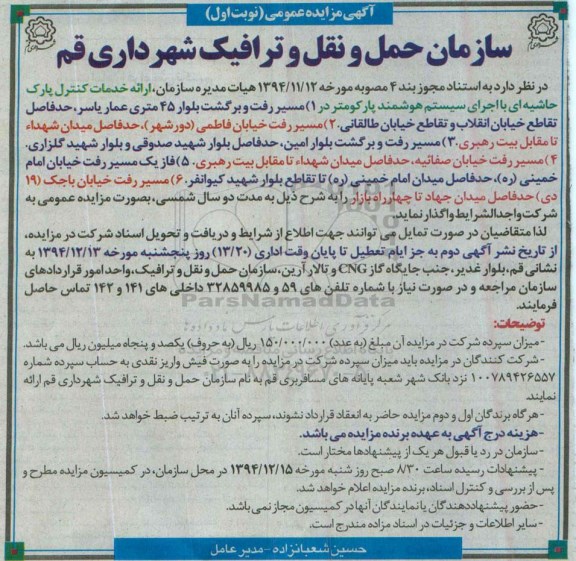 آگهی مزایده عمومی (نوبت اول)
سازمان حمل و نقل و ترافیک شهرداری قم
در نظر دارد به استناد مجوز بند ۴ مصوبه مورخه ۱۳۹۴/۱۱/۱۲ هیات مدیره سازمان، ارائه خدمات کنترل پارک
حاشیه ای با اجرای سیستم هوشمند پارکومتر در ۱) مسیر رفت و برگشت بلوار ۴۵ متری عمار یاسر، حدفاصل
تقاطع خیابان انقلاب و تقاطع خیابان طالقانی. ۲) مسیر رفت خیابان فاطمی (دورشهر)، حدفاصل میدان شهداء
تا مقابل بیت رهبری. ۳) مسیر رفت و برگشت بلوار امین، حدفاصل بلوار شهید صدوقی و بلوار شهید گلزاری.
۴) مسیر رفت خیابان صفائیه، حدفاصل میدان شهداء تا مقابل بیت رهبری. ۵) فاز یک مسیر رفت خیابان امام
خمینی (ره)، حدفاصل میدان امام خمینی (ره) تا تقاطع بلوار شهید کیوانفر. ۶) مسیر رفت خیابان باجک (۱۹
دی) حدفاصل میدان جهاد تا چهارراه بازار را به شرح ذیل به مدت دو سال شمسی، بصورت مزایده عمومی به
شرکت واجد الشرایط واگذار نماید.
لذا متقاضیان در صورت تمایل می توانند جهت اطلاع از شرایط و دریافت و تحویل اسناد شرکت در مزایده،
از تاریخ نشر آگهی دوم به جز ایام تعطیل تا پایان وقت اداری (۱۳/۲۰) روز پنجشنبه مورخه ۱۳۹۴/۱۲/۱۳ به
نشانی قم، بلوار غدیر، جنب جایگاه گاز CNG و تالار آرین، سازمان حمل و نقل و ترافیک، واحد امور قراردادهای
سازمان مراجعه و در صورت نیاز با شماره تلفن های ۵۹ و ۳۲۸۵۹۹۸۵ داخلی های ۱۴۱ و ۱۴۲ تماس حاصل
فرمایند.
ParsNamadData
توضیحات:
-میزان سپرده شرکت در مزایده آن مبلغ (به عدد) ۱۵۰/۰۰۰/۰۰۰ ریال (به حروف) یکصد و پنجاه میلیون ریال می باشد.
-شرکت کنندگان در مزایده باید میزان سپرده شرکت در مزایده را به صورت فیش واریز نقدی به حساب سپرده شماره
۱۰۰۷۸۹۴۲۶۵۵۷ نزد بانک شهر شعبه پایانه های مسافربری قم به نام سازمان حمل و نقل و ترافیک شهرداری قم ارائه
نمایند.
-هرگاه برندگان اول و دوم مزایده حاضر به انعقاد قرارداد نشوند، سپرده آنان به ترتیب ضبط خواهد شد.
-هزینه درج آگهی به عهده برنده مزایده می باشد.
-سازمان در رد یا قبول هر یک از پیشنهادها مختار است.
-پیشنهادات رسیده ساعت ۸/۳۰ صبح روز شنبه مورخه ۱۳۹۴/۱۲/۱۵ در محل سازمان، در کمیسیون مزایده مطرح و
پس از بررسی و کنترل اسناد، برنده مزایده اعلام خواهد شد.
-حضور پیشنهاددهندگان یا نمایندگان آنها در کمیسیون مجاز نمی باشد.
-سایر اطلاعات و جزئیات در اسناد مزاده مندرج است.
حسین شعبانزاده -مدیر عامل